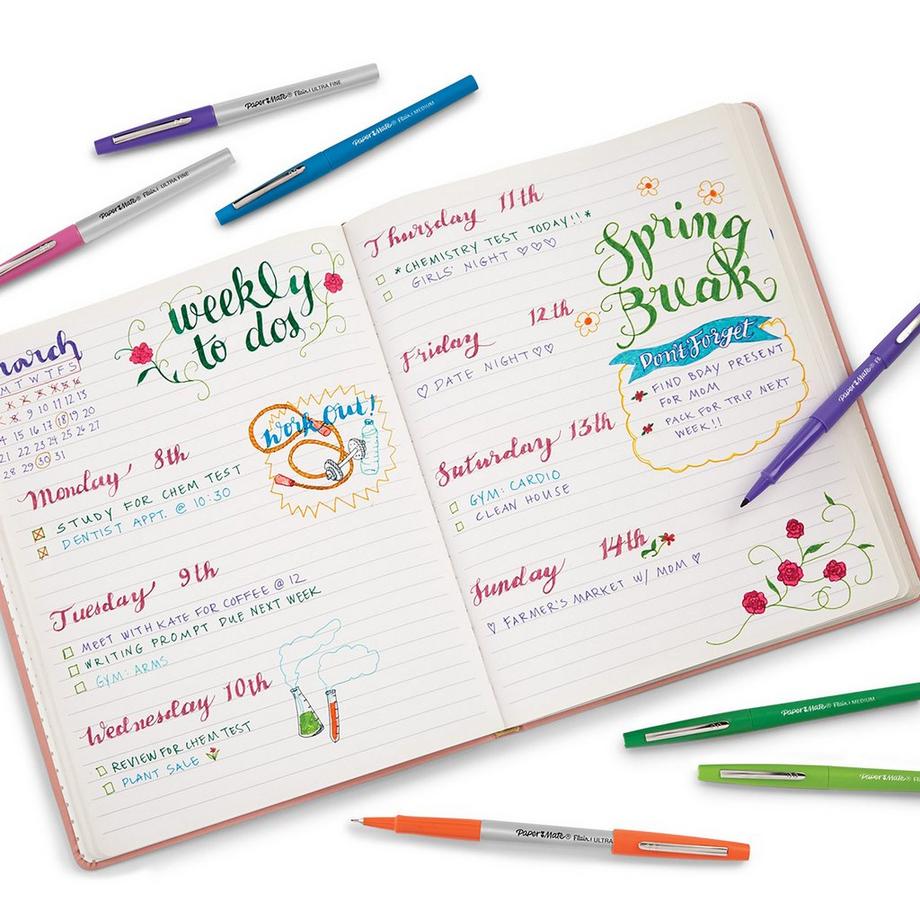 Paper Mate® Flair. ULTRA FINE
Paper Mate® Flair. MEDIUM
Paper Mate® Flair. ULTRA FINE
March
M T W T F S
8 9 10 11 12 13
14 15 16 17 18 19 20
21 22 23 24 25 26 27
28 29 30 31
weekly
to dos
Monday 8th
STUDY FOR CHEM TEST
DENTIST APPT. @ 10:30
work out!
Tuesday 9th
MEET WITH KATE FOR COFFEE @ 12
WRITING PROMPT DUE NEXT WEEK
GYM: ARMS
Wednesday 10th
REVIEW FOR CHEM TEST
PLANT SALE
Thursday 11th
*CHEMISTRY TEST TODAY!!*
GIRLS' NIGHT ♡♡♡
Friday 12th
♡ DATE NIGHT ♡♡
Saturday 13th
GYM: CARDIO
CLEAN HOUSE
Sunday 14th
♡ FARMER'S MARKET W/ MOM ♡
Spring
Break
Don't Forget
FIND BDAY PRESENT
FOR MOM
PACK FOR TRIP NEXT
WEEK!!
Paper Mate®
Paper Mate® Flair. MEDIUM
Paper Mate®
Paper Mate® Flair. ULTRA